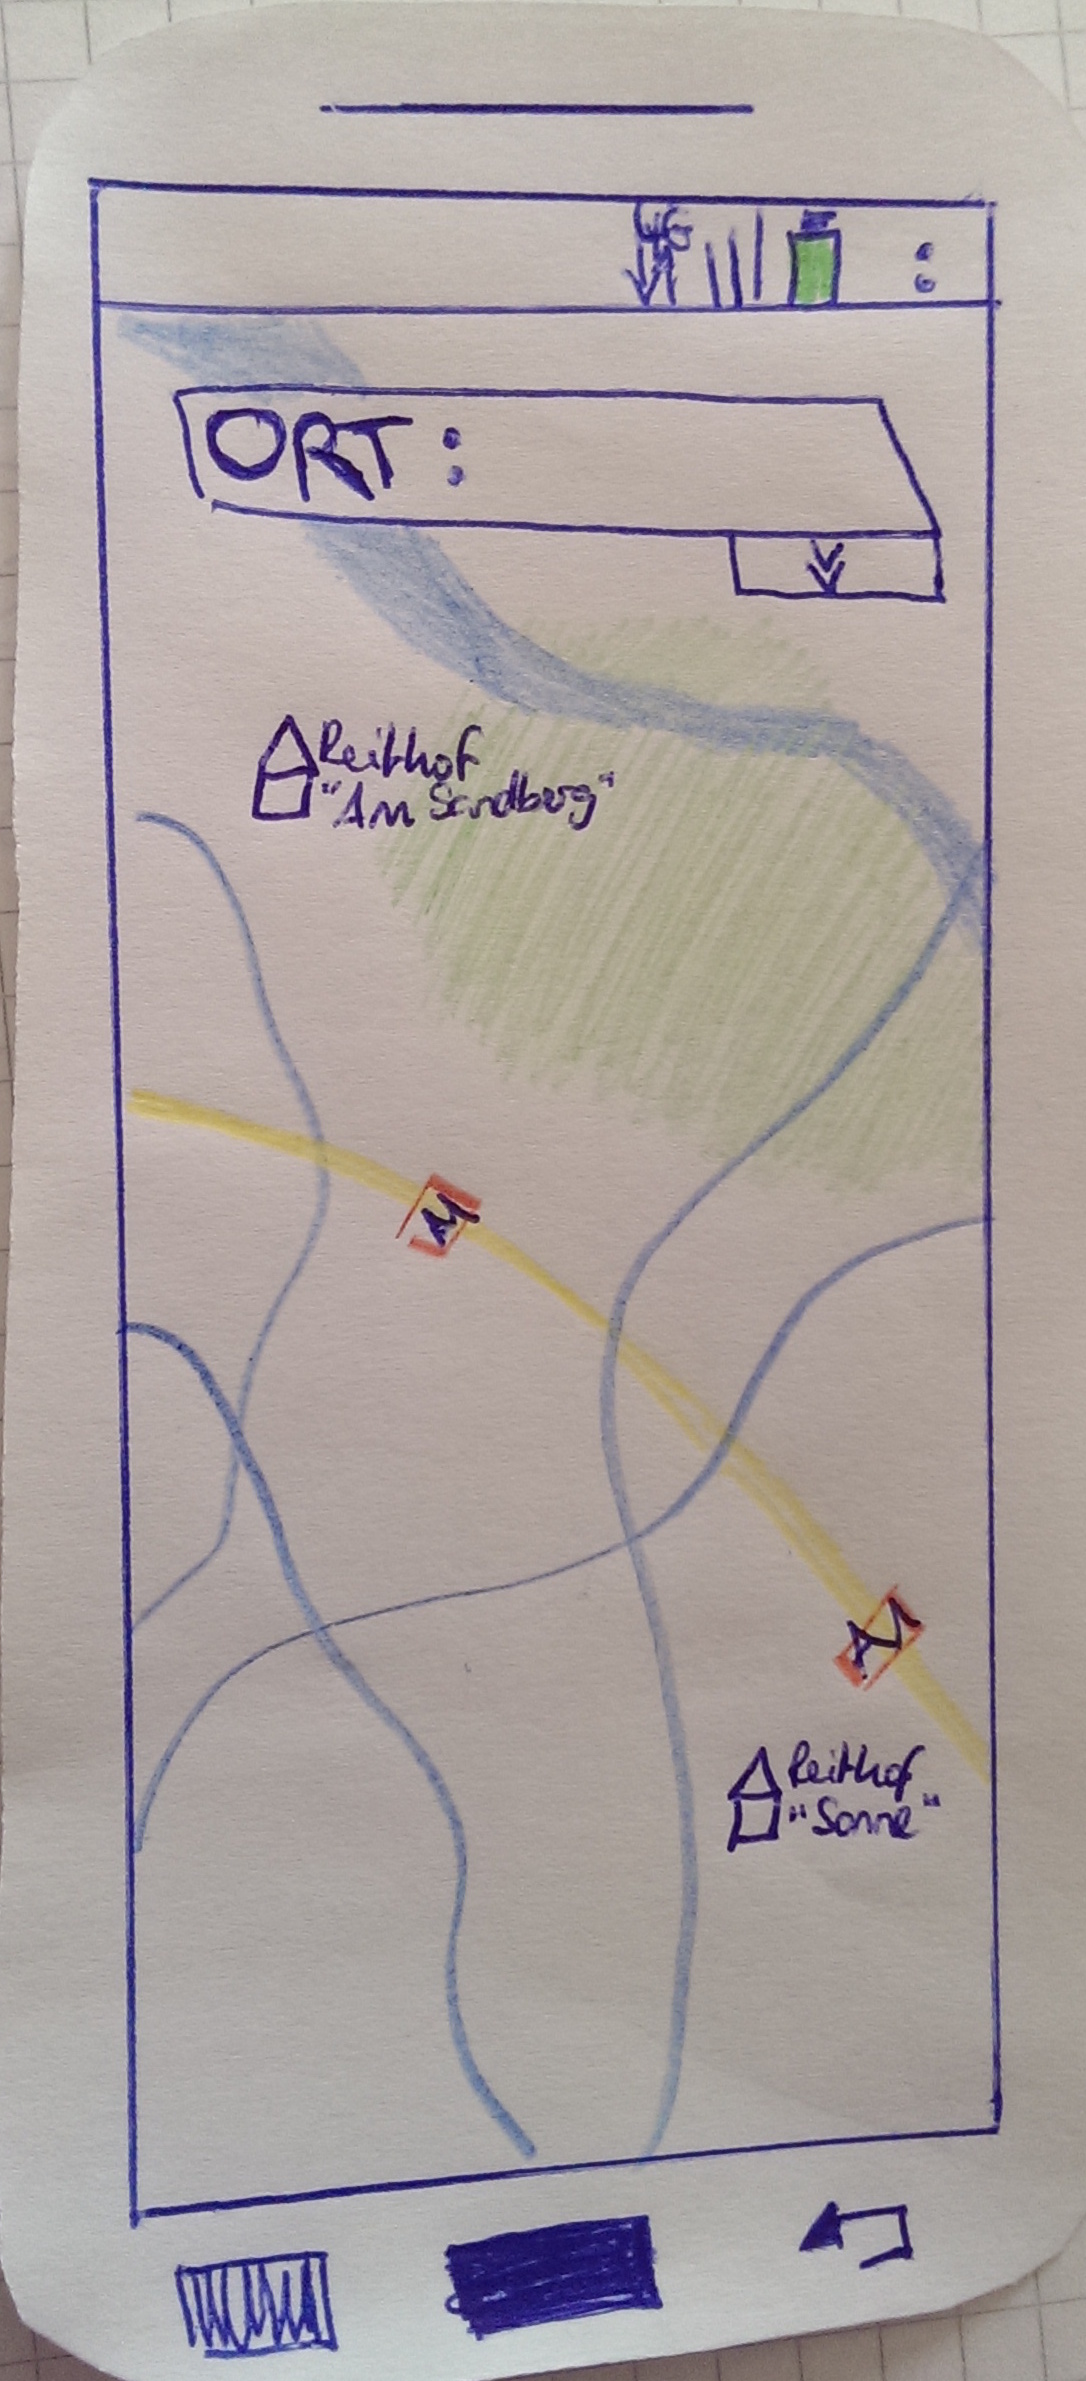 4G
ORT :
Reithof
"Am Sandberg"
M
M
Reithof
"Sonne"